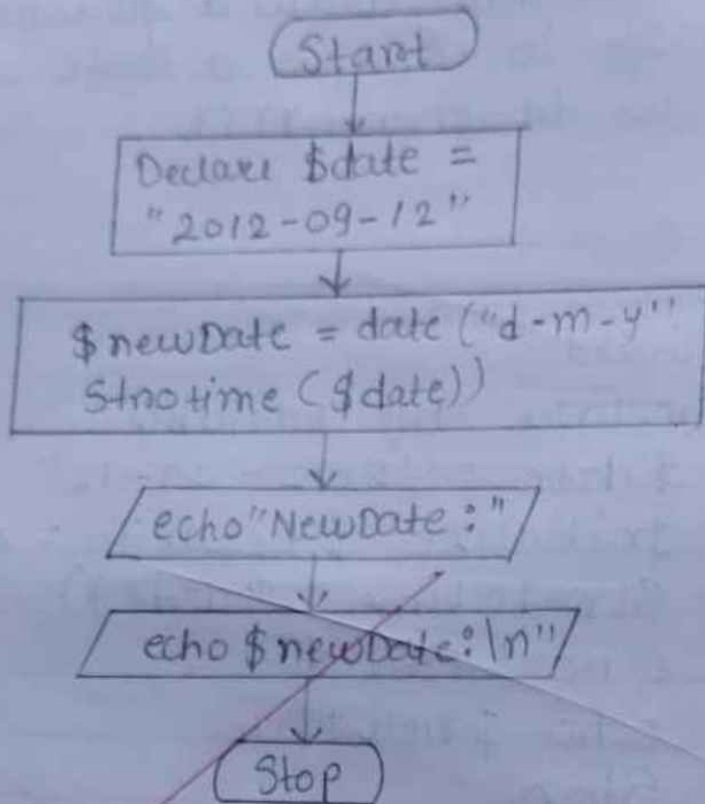 Start
Declare $date =
"2012-09-12"
$newDate = date ("d-m-y"
Strotime ($date))
echo"NewDate:"
echo $newDate:\n"
Stop